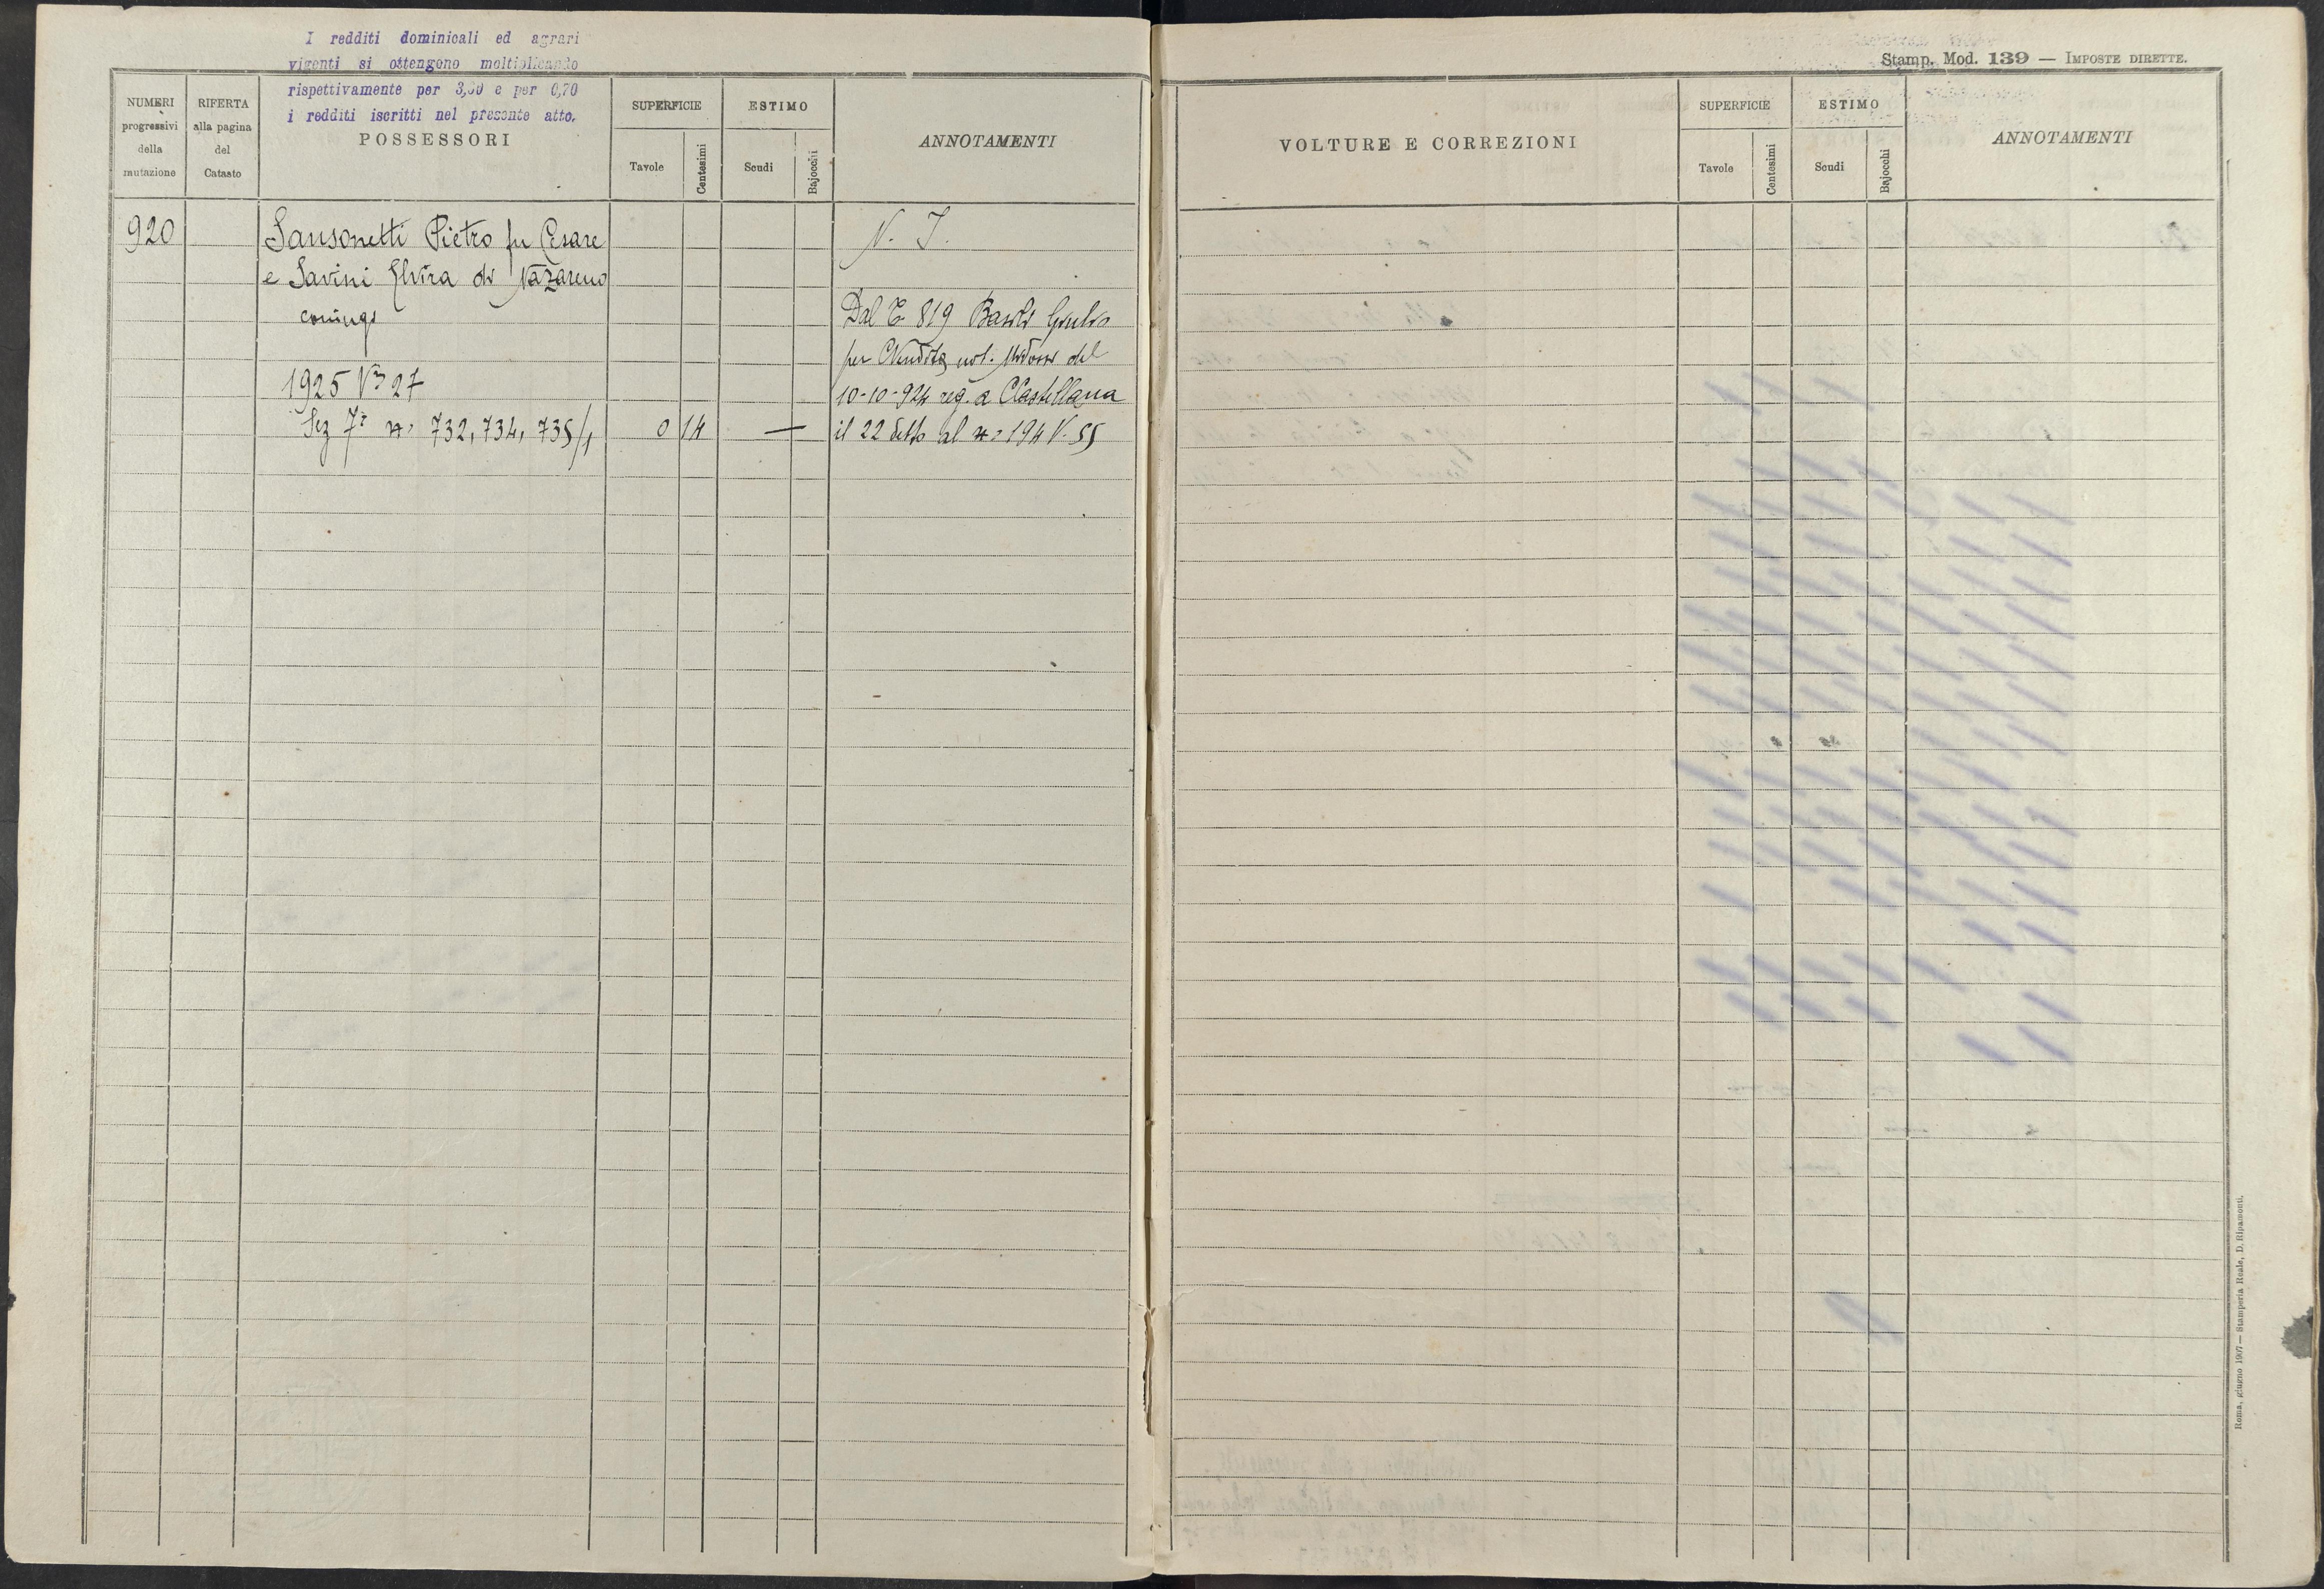 I redditi dominicali ed agrari
vigenti si ottengono moltiplicando
rispettivamente per 3,50 e per 0,70
i redditi iscritti nel presente atto.
NUMERI
progressivi
della
mutazione
RIFERTA
alla pagina
del
Catasto
POSSESSORI
SUPERFICIE
Tavole
Centesimi
ESTIMO
Scudi
Bajocchi
ANNOTAMENTI
920
Sansonetti Pietro fu Cesare
e Savini Elvira di Nazareno
coniugi
1925 V 27
Sez 7ª n. 732, 734, 735/1 0 14 —
N. I.
Dal 819 Basili Giulio
per Vendita not. del
10-10-924 reg. a CCastellana
il 22 detto al n. 194 V. 55
Stamp. Mod. 139 — IMPOSTE DIRETTE.
VOLTURE E CORREZIONI
SUPERFICIE
Tavole
Centesimi
ESTIMO
Scudi
Bajocchi
ANNOTAMENTI
Roma, giugno 1907 — Stamperia Reale, D. Ripamonti.